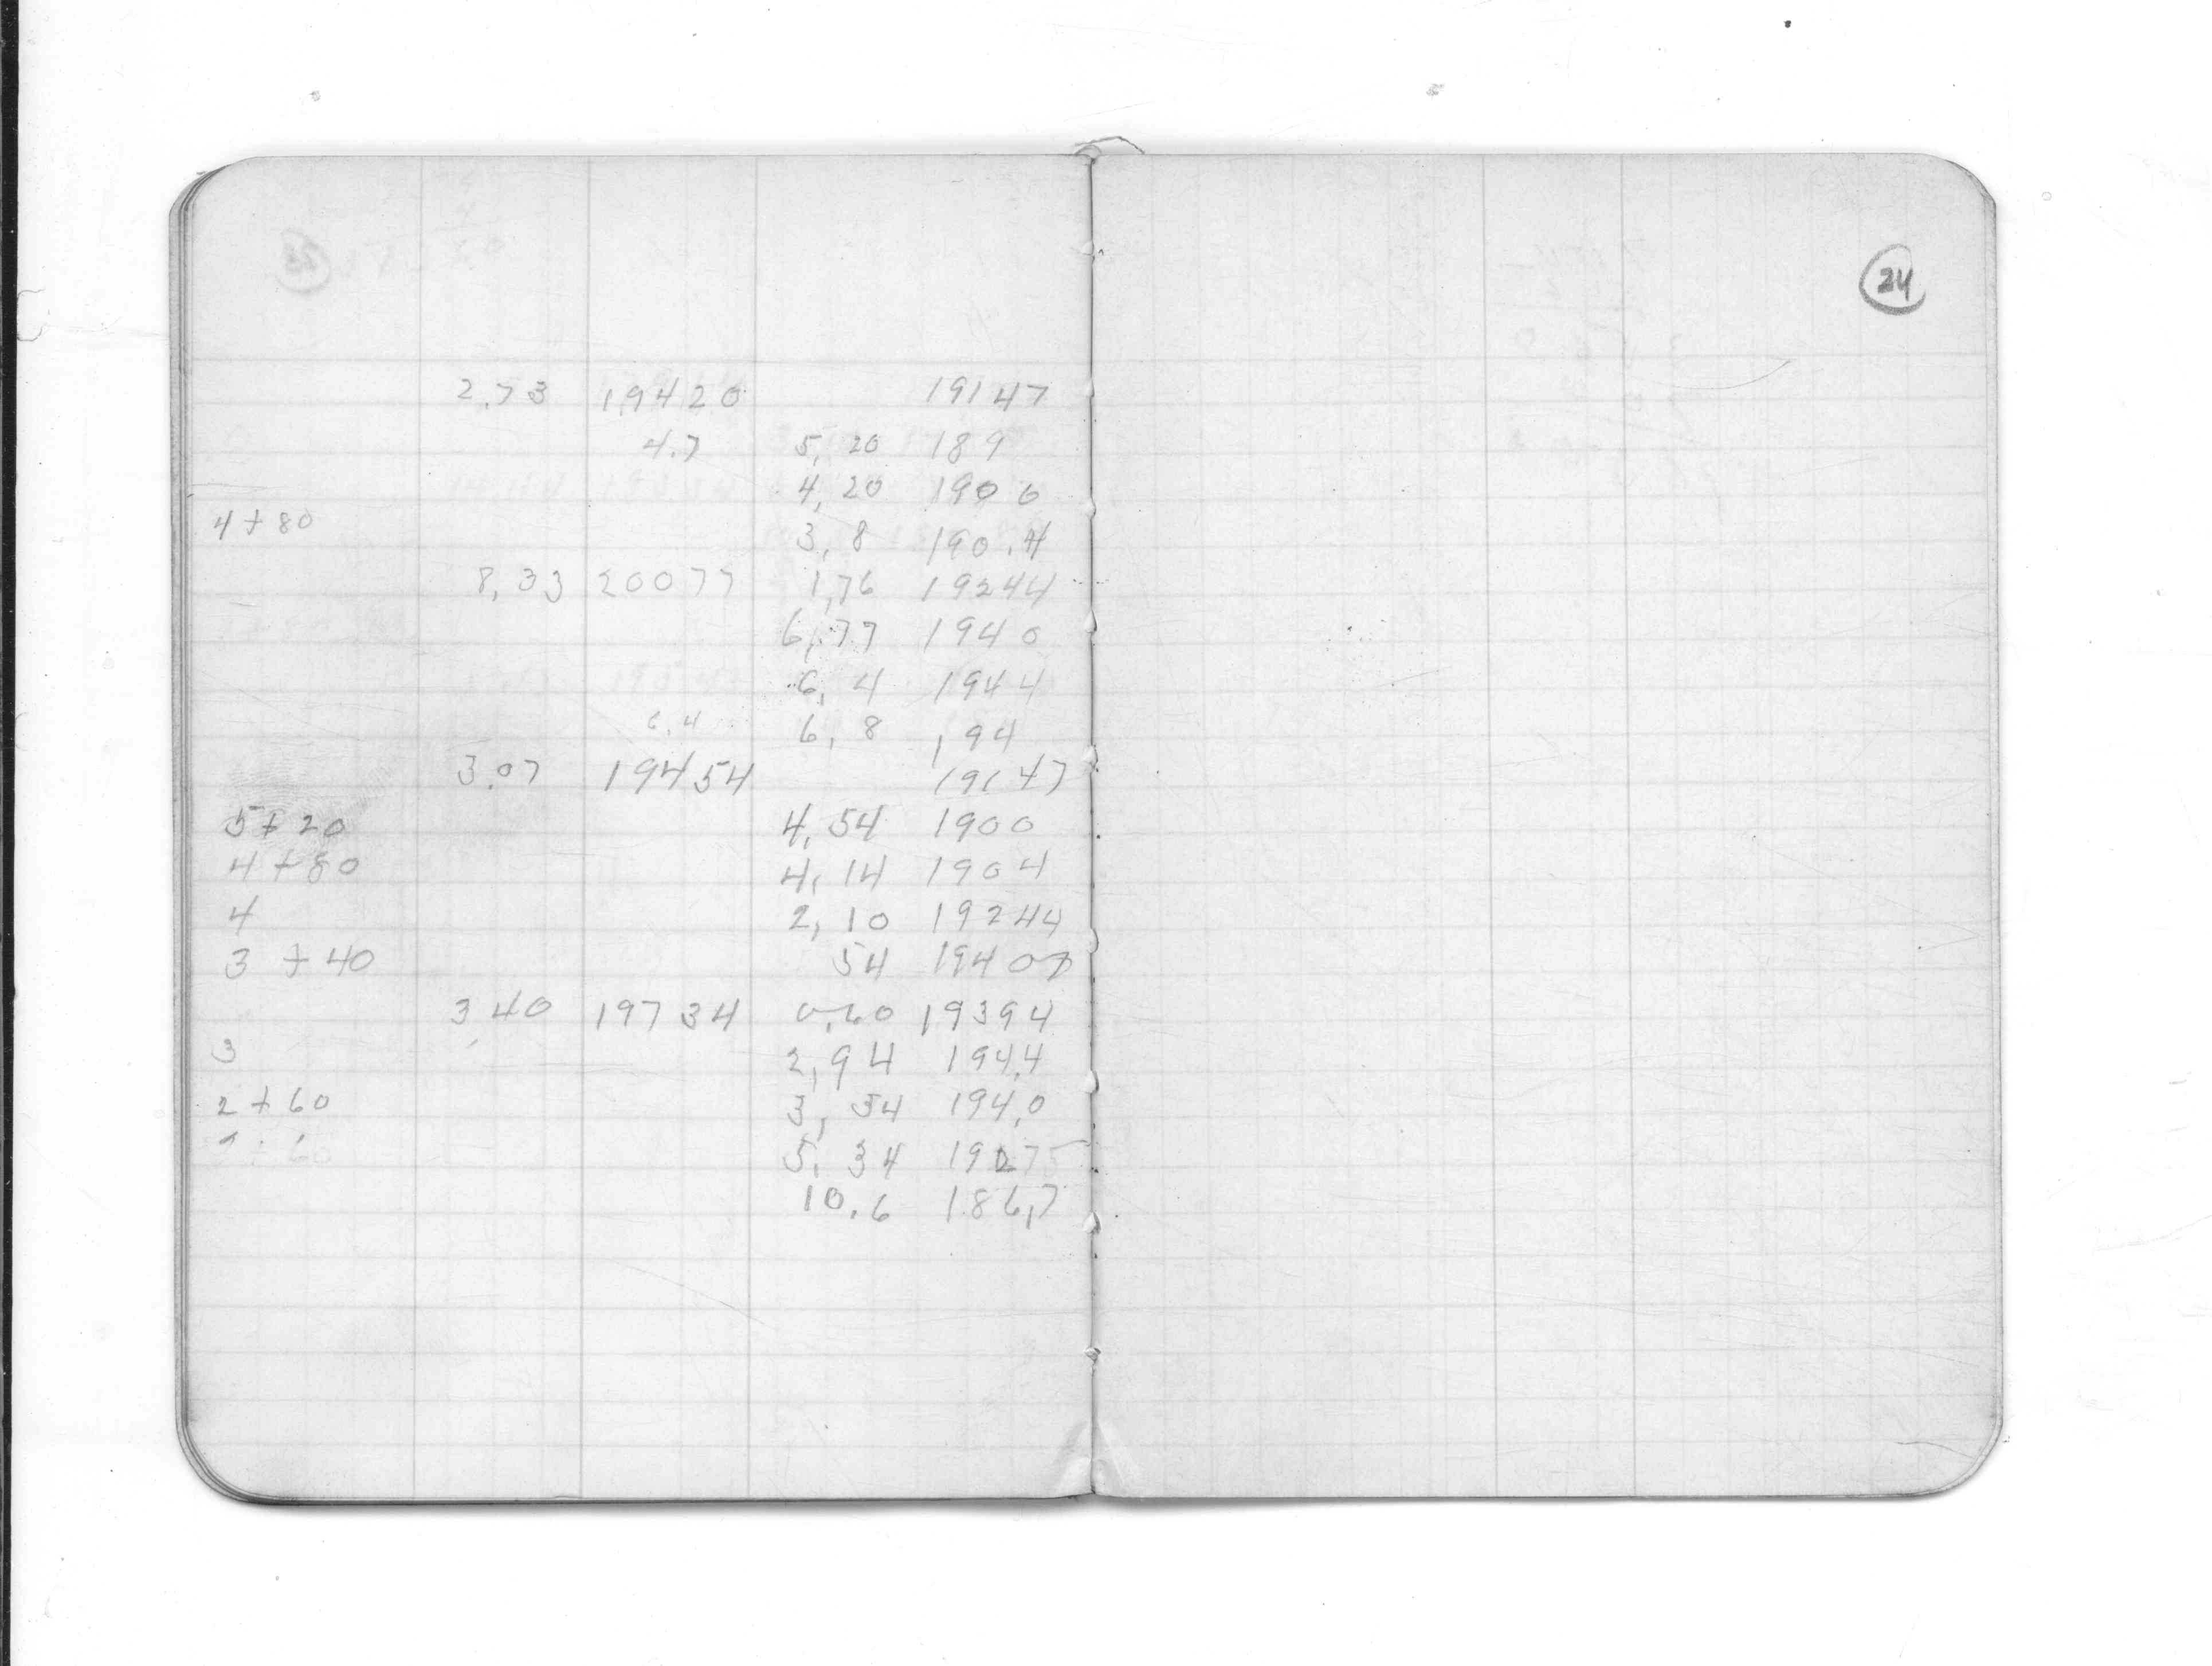 24
2.73 19420 19147
4.7 5,20 189
4,20 1900
4+80
3,8 190.4
8,33 20077 1,76 19244
6,77 1940
6,4 1944
6,4 6,8 194
3.07 19454 19147
5+20 4,54 1900
4+80 4,14 1904
4 2,10 19244
3 +40 54 19407
3 40 19734 0.60 19394
3 2,94 194.4
2+60 3,34 194.0
5.34 19275
10.6 186,7